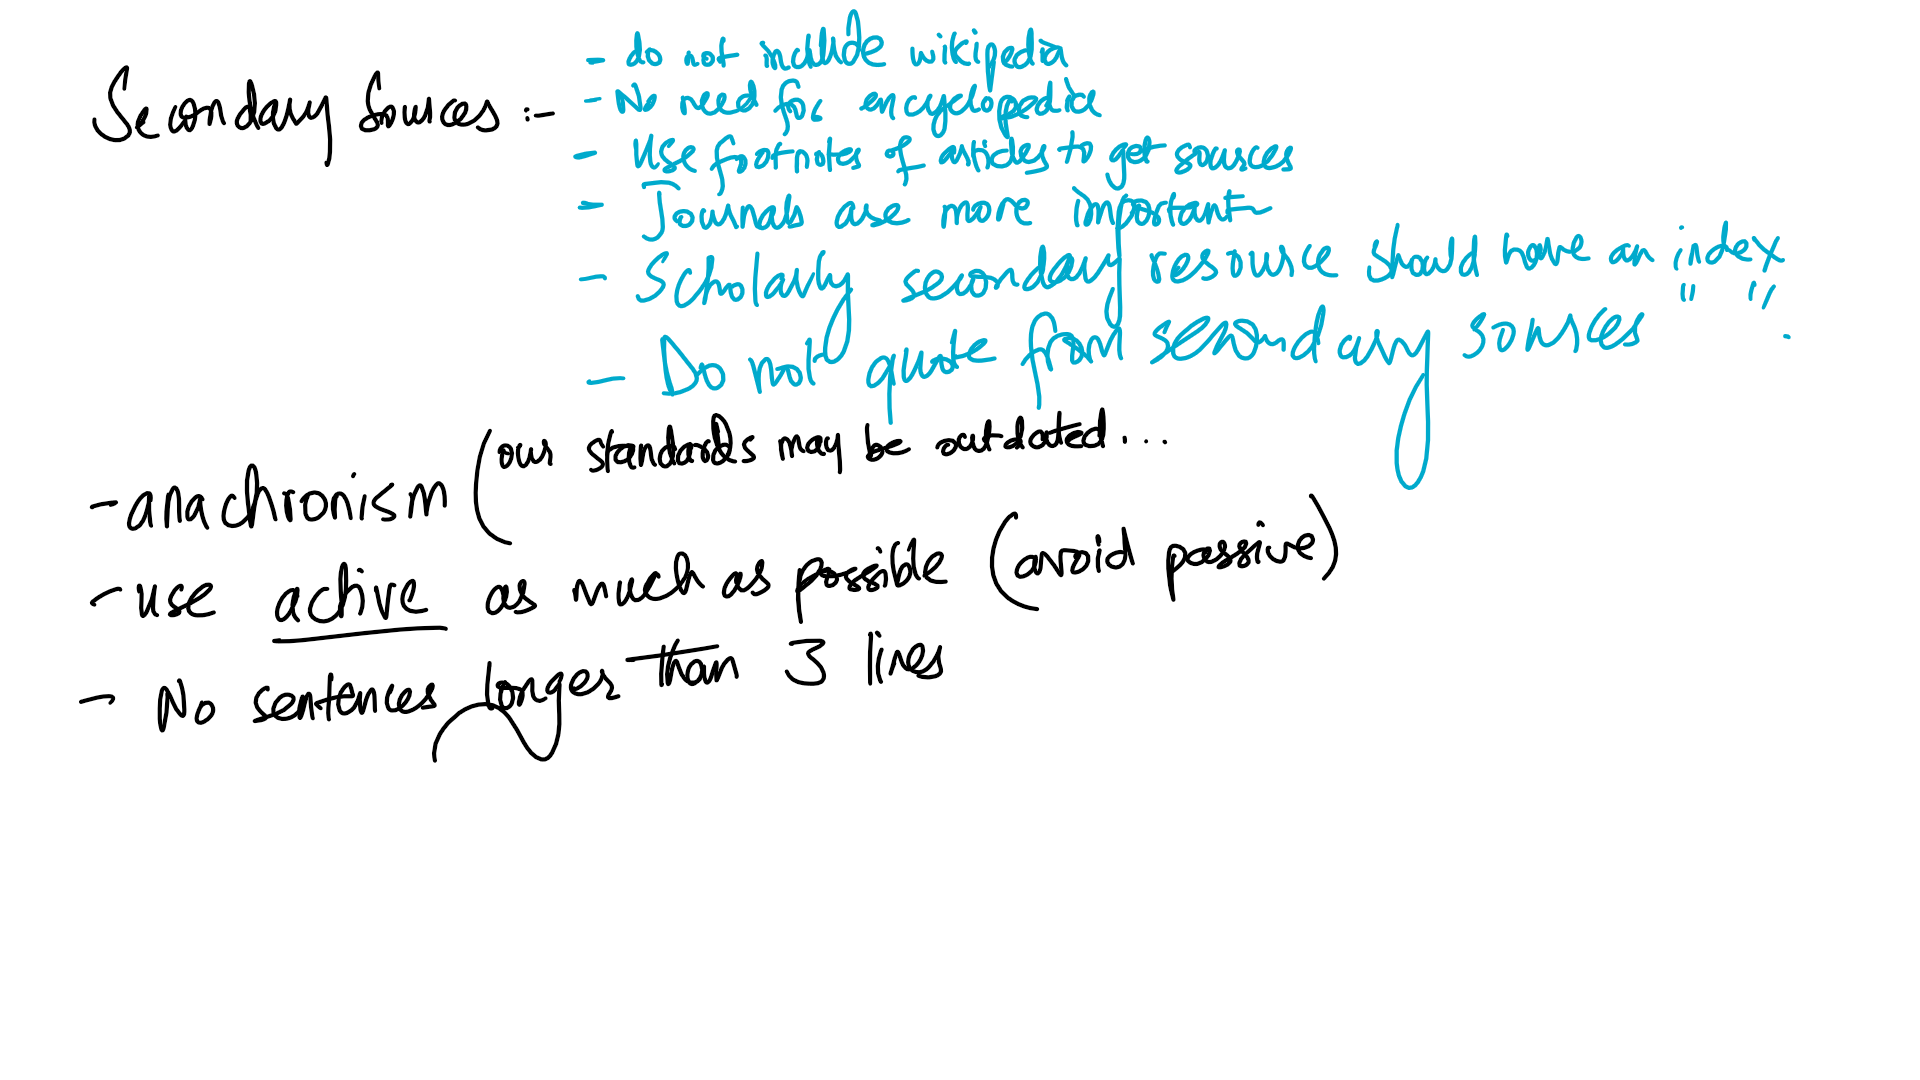 Secondary Sources :-
- do not include wikipedia
- No need for encyclopedia
- Use footnotes of articles to get sources
- Journals are more important
- Scholarly secondary resource should have an index
" "
- Do not quote from secondary sources .
- anachronism (our standards may be outdated...
- use active as much as possible (avoid passive)
- No sentences longer than 3 lines